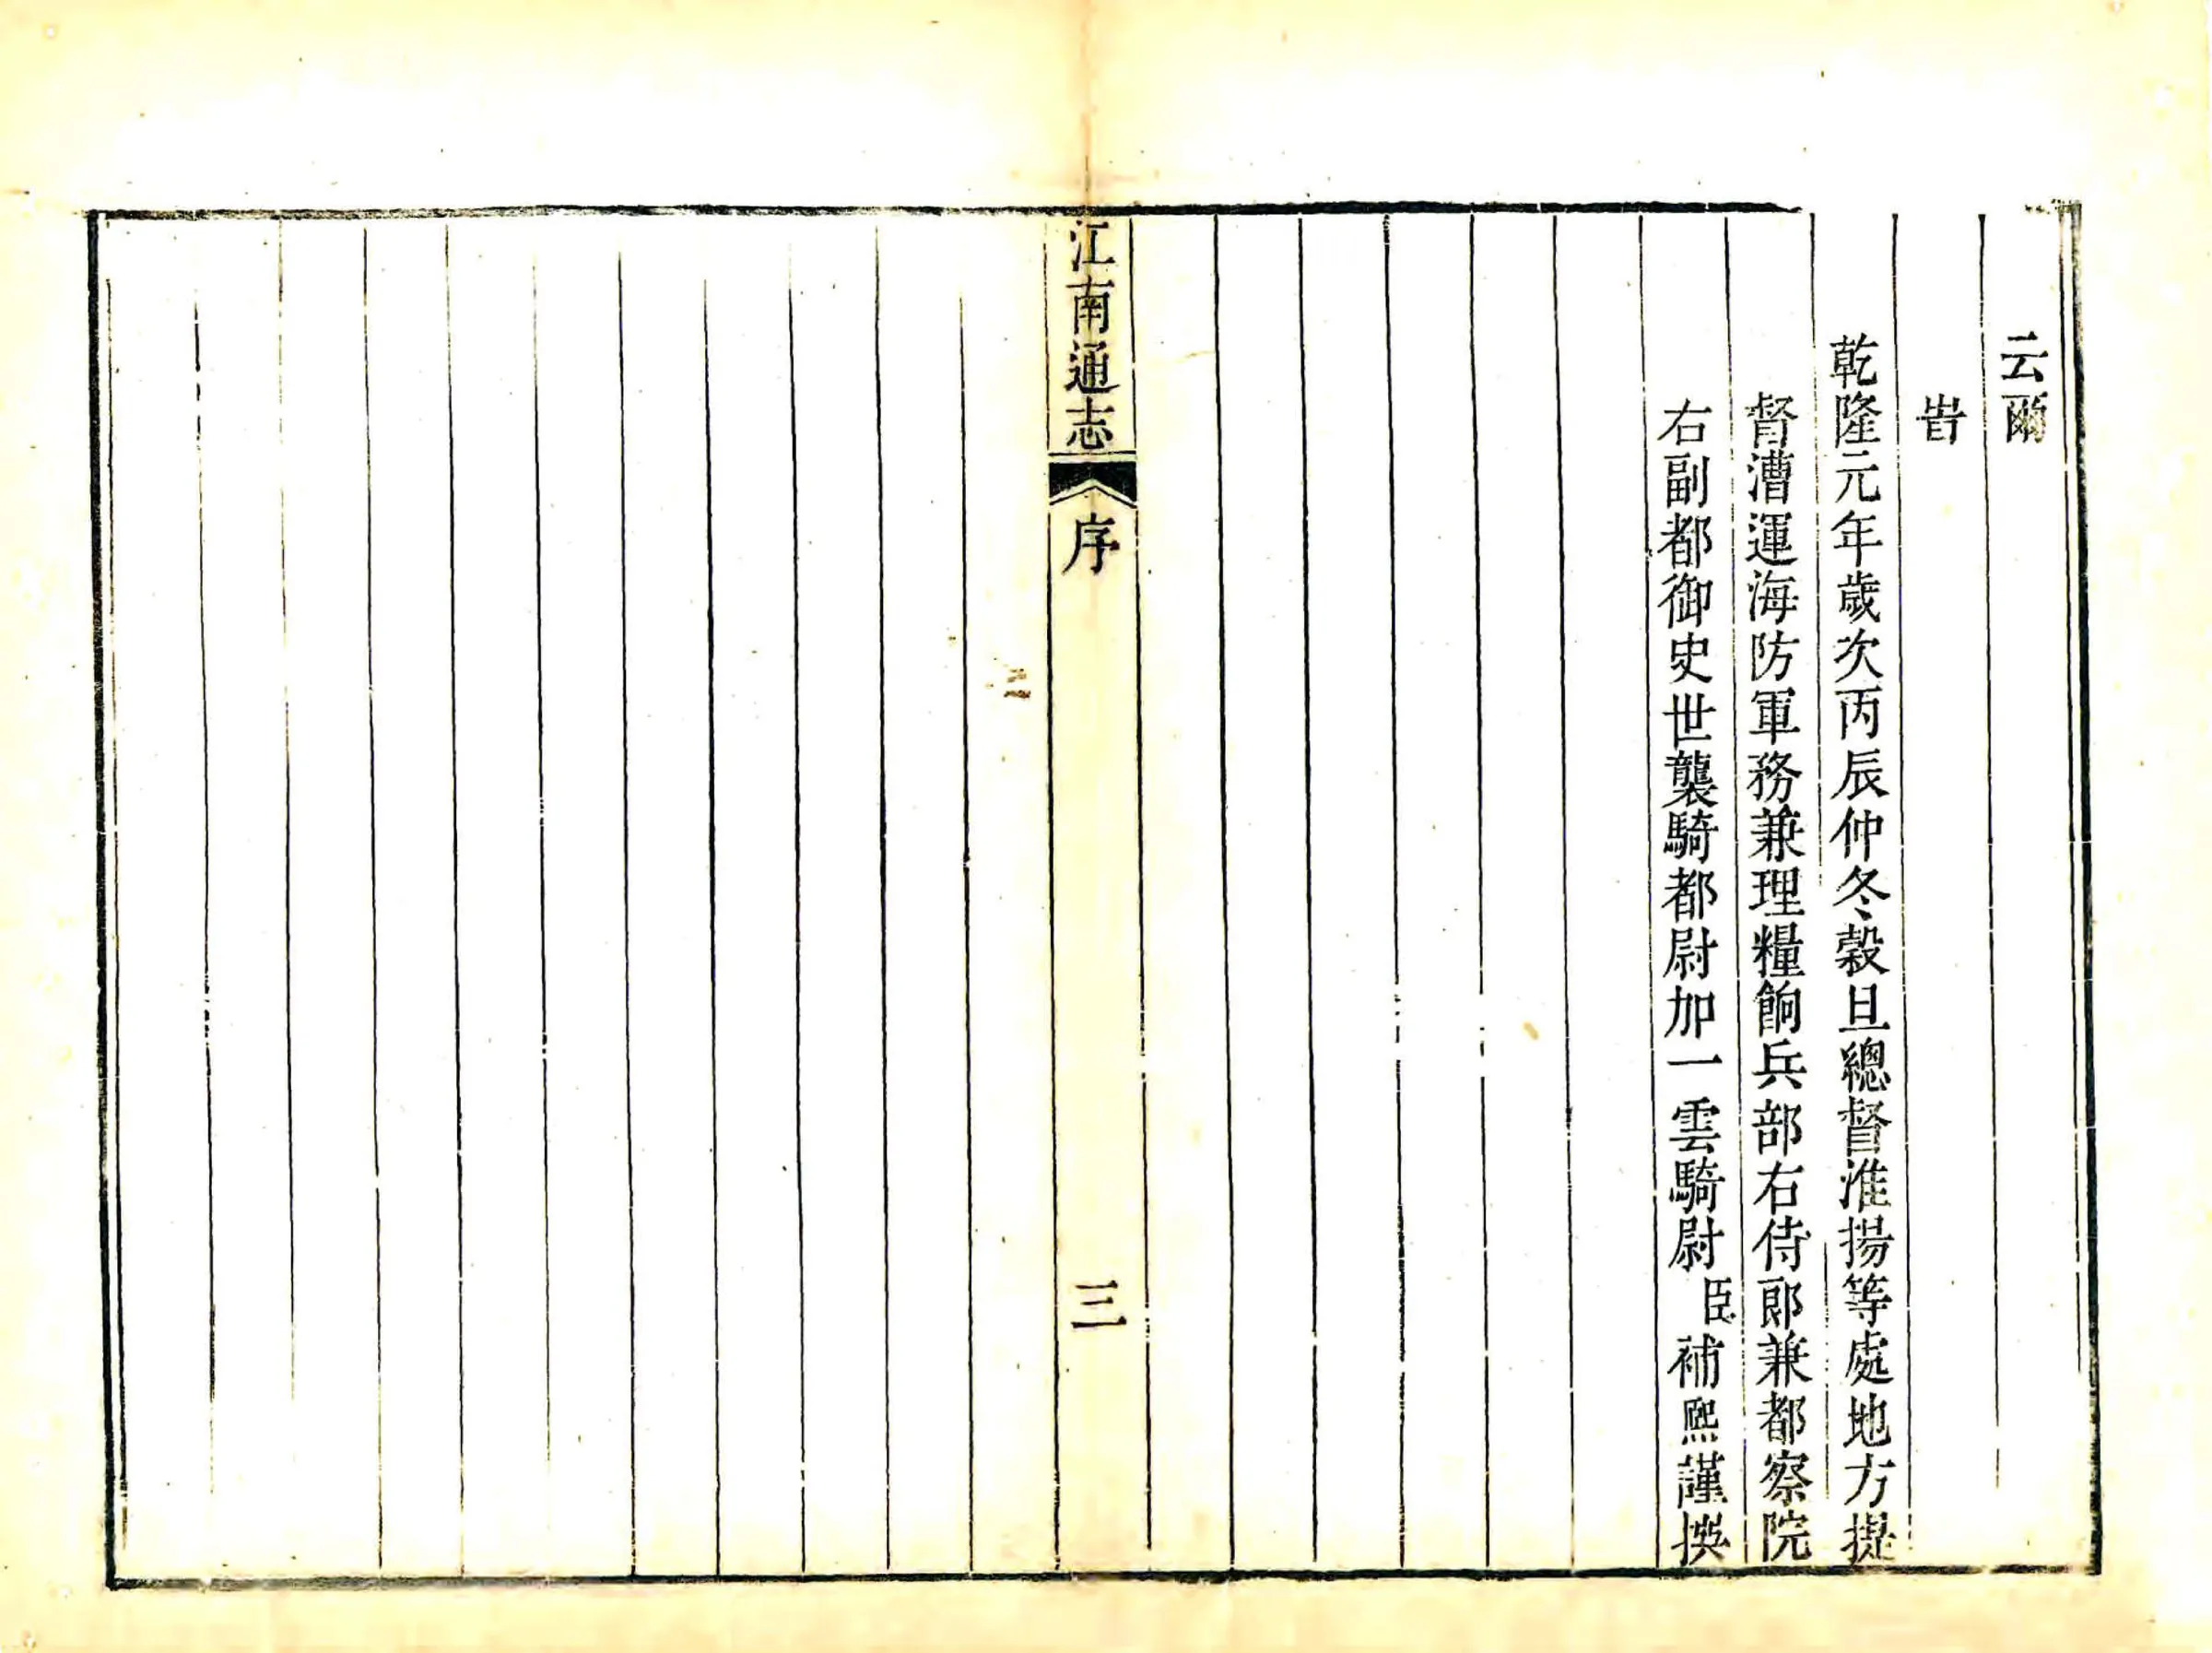 云爾
旹
乾隆元年歲次丙辰仲冬穀旦總督淮揚等處地方提
督漕運海防軍務兼理糧餉兵部右侍郎兼都察院
右副都御史世襲騎都尉加一雲騎尉臣補熙謹撰
江南通志 序 三